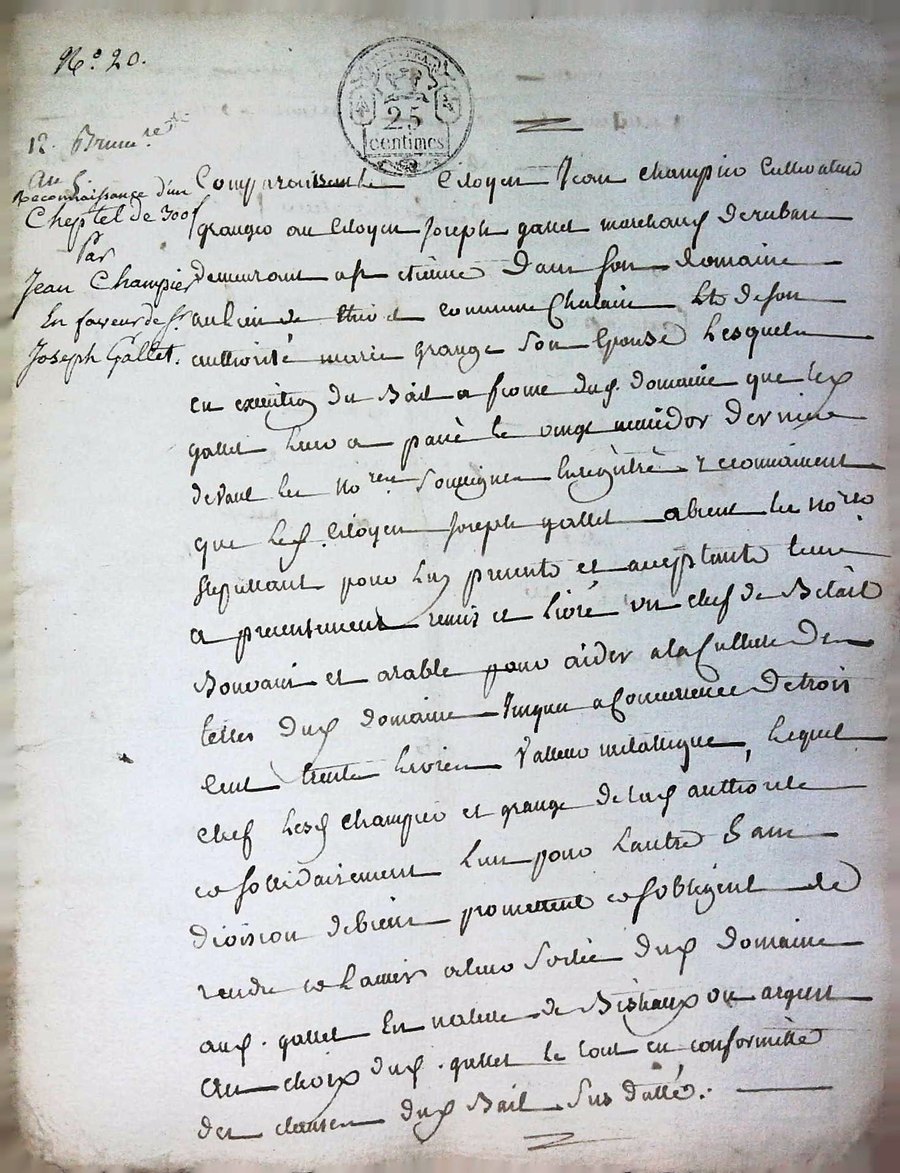 N.º 20.
25
centimes
12. Brum.re
an 5.
Reconnaissance d'un
Cheptel de 300f
Par
Jean Champier
En faveur de Sr.
Joseph Gallet.
Comparoissent le Citoyen Jean champier Cultivateur
granger au Citoyen Joseph gallet marchand de ruban
demeurant a st etienne dans son domaine
au lieu de commune et de son
authorité marie grange son Epouse Lesquels
en execution du Bail a ferme dud. domaine que led
gallet leur a passé le vingt messidor dernier
devant les no.res soussignes Enregistré reconnaissent
que led. Citoyen Joseph gallet absent les no.res
stipullant pour luy presents et acceptants leur
a presentement remis et livré un chef de Betail
Bouvain et arable pour aider a la Culture des
terres dud domaine Jusques a Concurrence de trois
cent trente Livres Valleur métallique, Lequel
chef Lesd champier et grange de lad authorité
et sollidairement L'un pour L'autre Sans
division de biens promettent et s'obligent de
rendre et laisser a leur sortie dud domaine
aud. gallet En nature de Bestiaux ou argent
au choix dud. gallet le tout en conformitté
des clauses dud Bail sus datté.